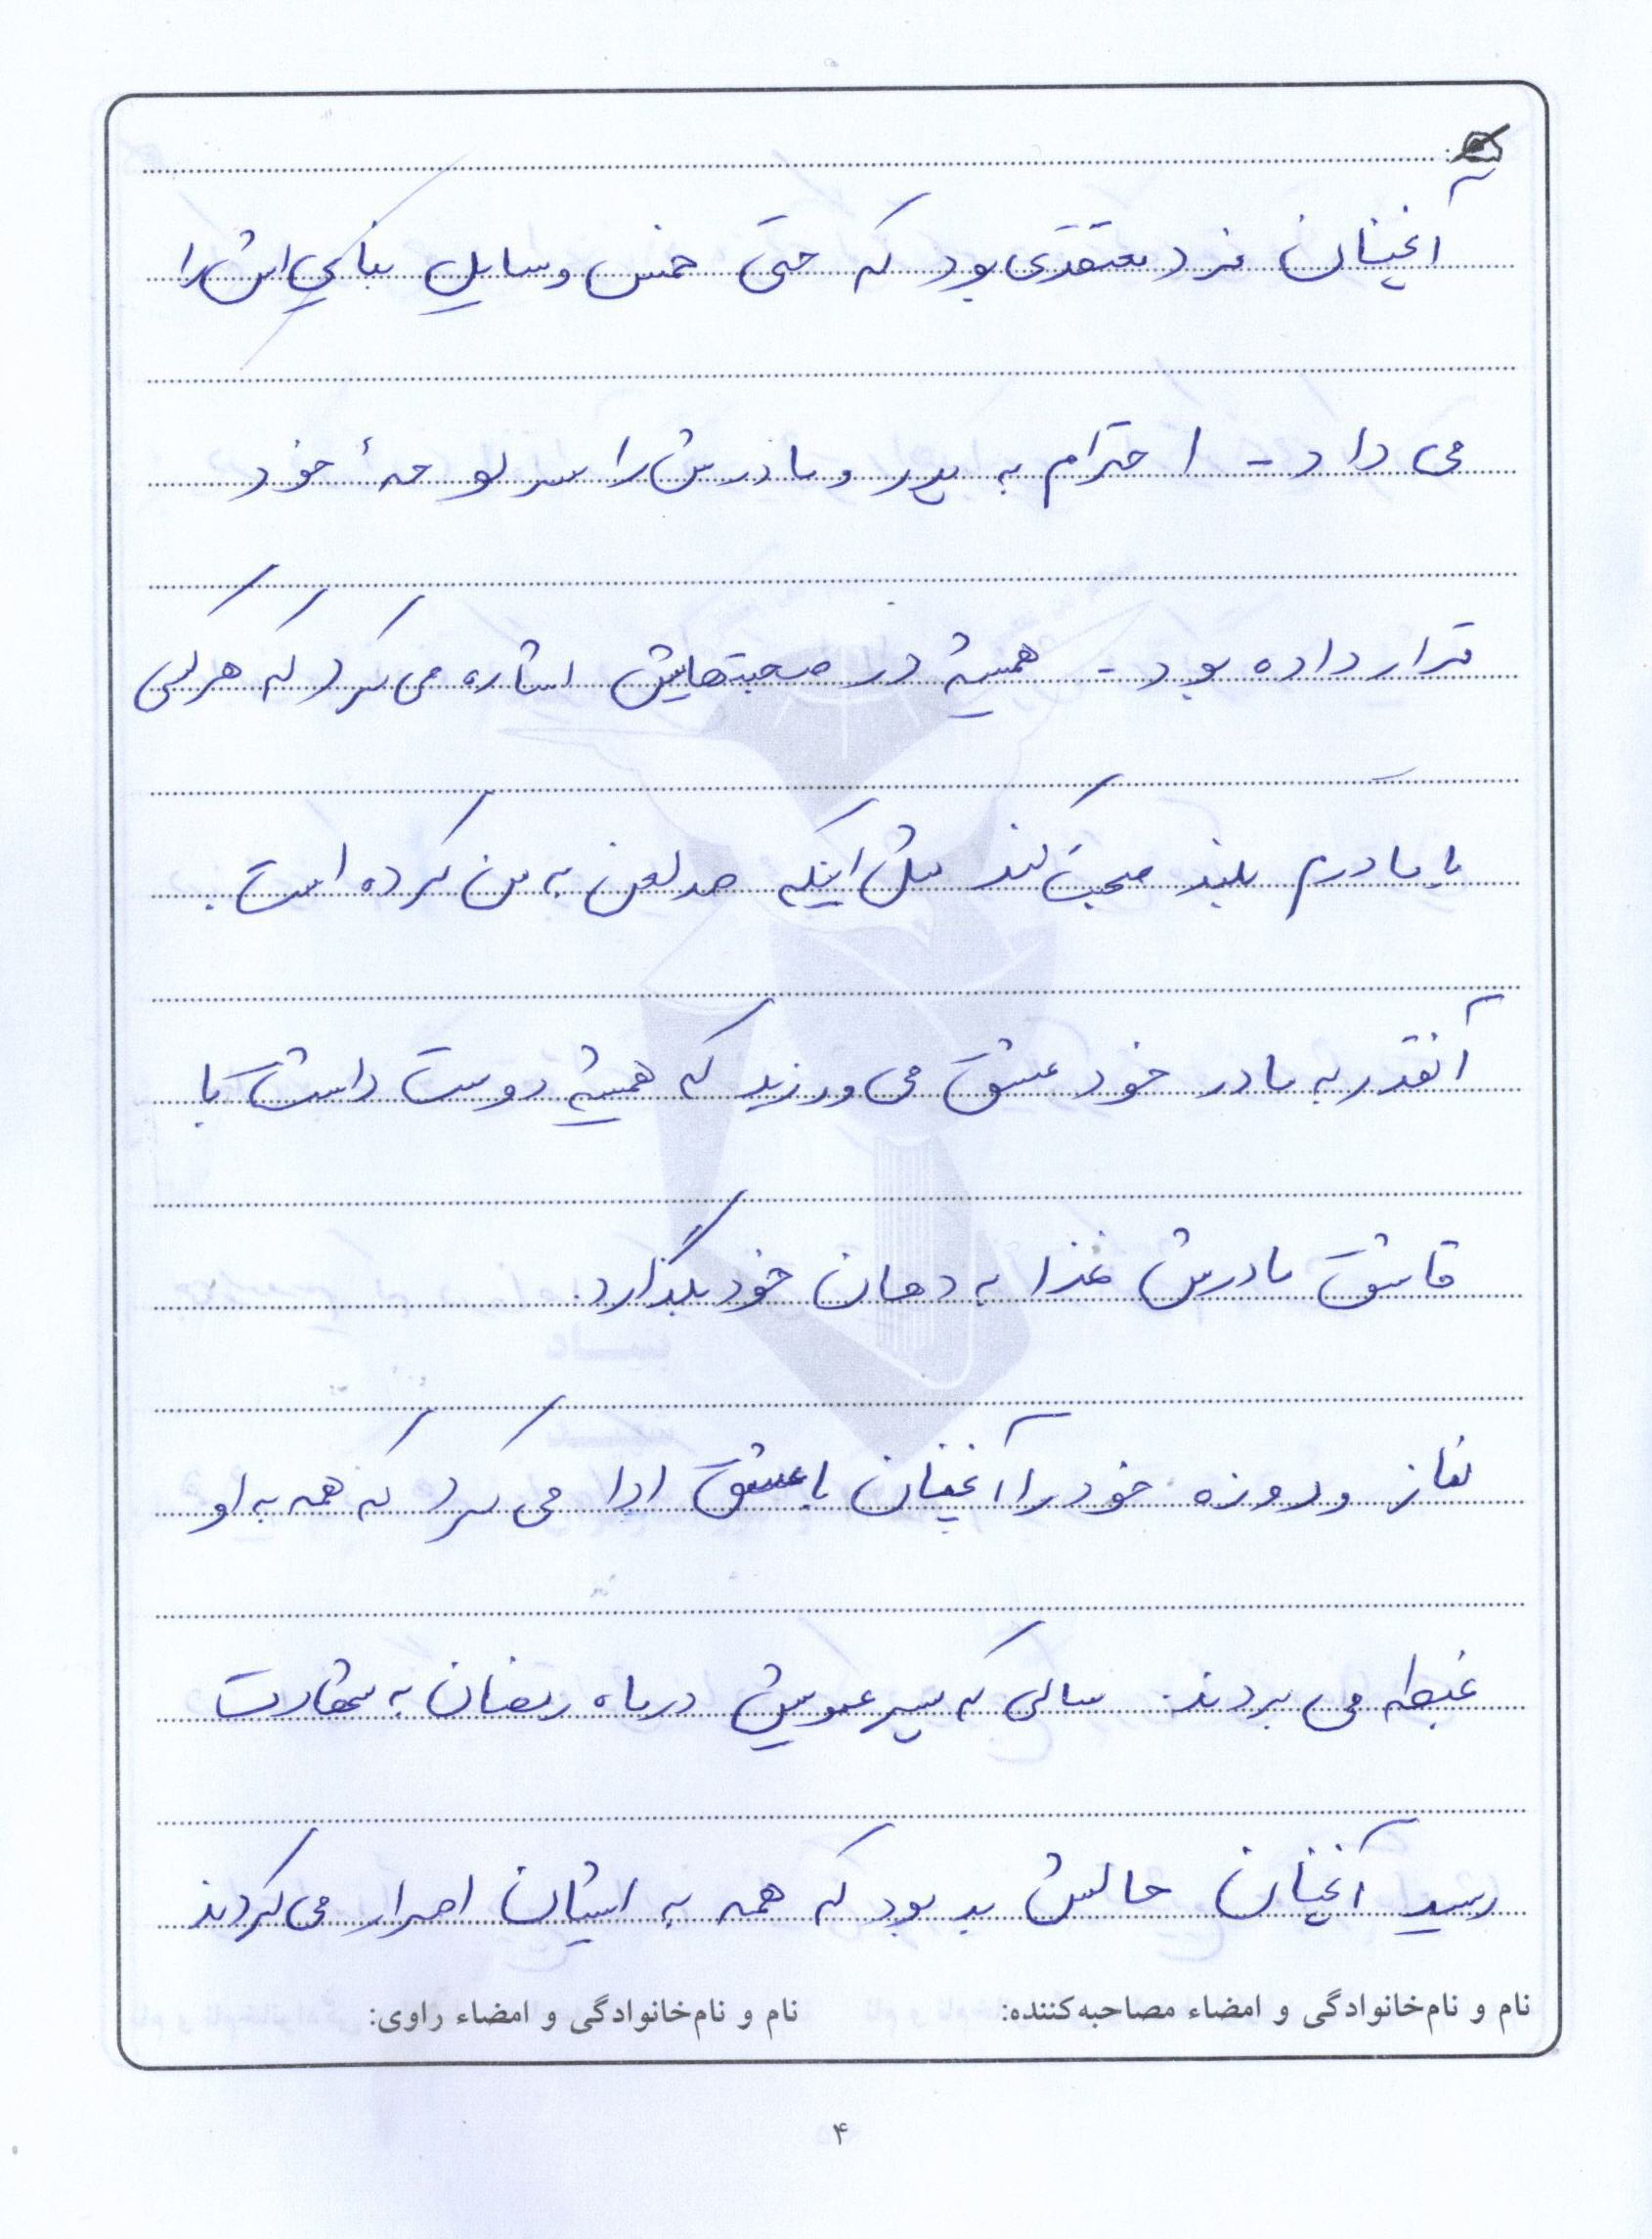 آنچنان فرد معتقدی بود که حتی خمس وسایل بناییاش را
می داد - احترام به پدر و مادرش را سر لوحهٔ خود
قرار داده بود - همیشه در صحبتهایش اشاره می کرد که هر کسی
با مادرم بلند صحبت کند مثل اینکه صد لعن به من کرده است.
آنقدر به مادر خود عشق می ورزید که همیشه دوست داشت با
قاشق مادرش غذا به دهان خود بگذارد.
نماز و روزه خود را آنچنان با عشق ادا می کرد که همه به او
غبطه می بردند. سالی که پسر عمویش در ماه رمضان به شهادت
رسید آنچنان حالش بد بود که همه به ایشان اصرار می کردند
نام و نام‌خانوادگی و امضاء مصاحبه‌کننده: نام و نام‌خانوادگی و امضاء راوی:
۴